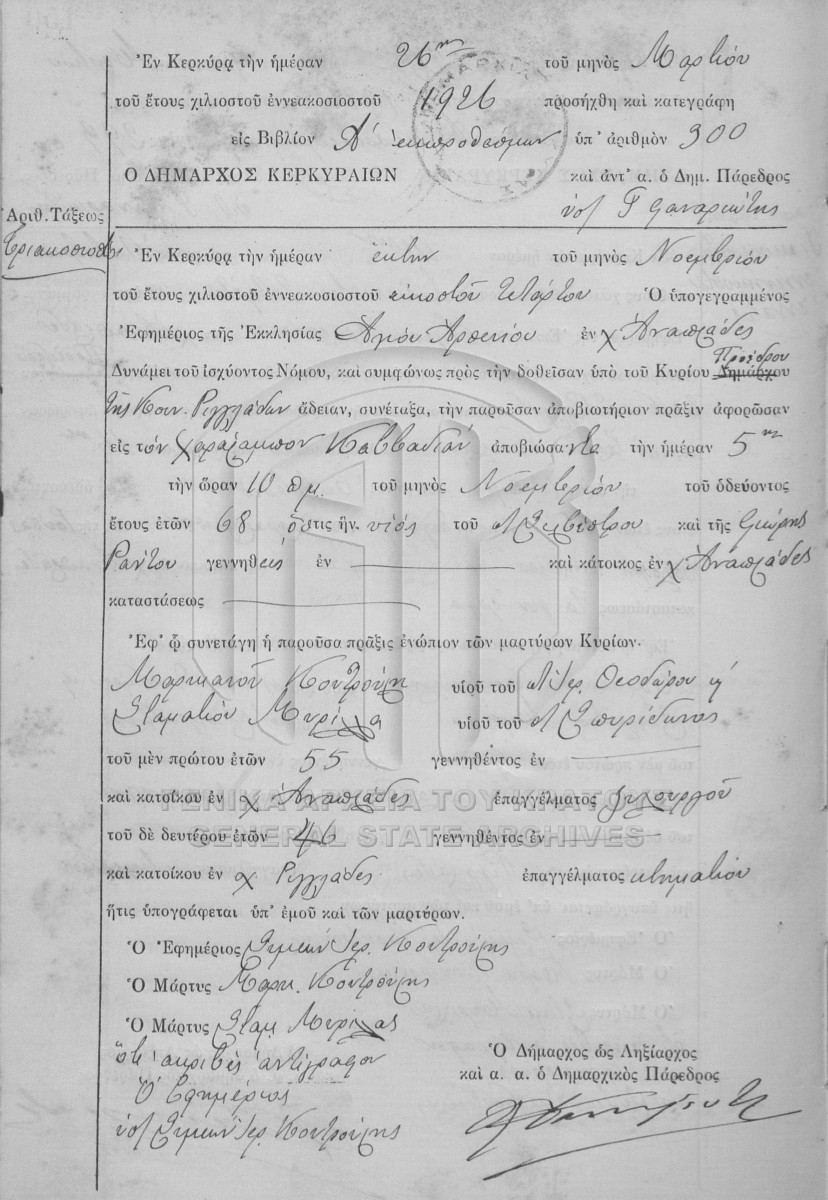 Ἐν Κερκύρᾳ τὴν ἡμέραν 26ην τοῦ μηνὸς Μαρτίου
τοῦ ἔτους χιλιοστοῦ ἐννεακοσιοστοῦ 1926 προσήχθη καὶ κατεγράφη
εἰς Βιβλίον Α' ἐκπροθέσμων ὑπ' ἀριθμὸν 300
Ο ΔΗΜΑΡΧΟΣ ΚΕΡΚΥΡΑΙΩΝ καὶ ἀντ' α. ὁ Δημ. Πάρεδρος
Ἀριθ. Τάξεως
Τριακοσιοστὸς
Ἐν Κερκύρᾳ τὴν ἡμέραν ἕκτην τοῦ μηνὸς Νοεμβρίου
τοῦ ἔτους χιλιοστοῦ ἐννεακοσιοστοῦ εἰκοστοῦ τετάρτου Ὁ ὑπογεγραμμένος
Ἐφημέριος τῆς Ἐκκλησίας Ἁγίου Ἀρσενίου ἐν χ Ἀναπλάδες
Δυνάμει τοῦ ἰσχύοντος Νόμου, καὶ συμφώνως πρὸς τὴν δοθεῖσαν ὑπὸ τοῦ Κυρίου Δημάρχου Προέδρου
τῆς Κοιν. Ριγγλάδων ἄδειαν, συνέταξα, τὴν παροῦσαν ἀποβιωτήριον πρᾶξιν ἀφορῶσαν
εἰς τὸν Χαράλαμπον Καββαδίαν ἀποβιώσαντα τὴν ἡμέραν 5ην
τὴν ὥραν 10 πμ. τοῦ μηνὸς Νοεμβρίου τοῦ ὁδεύοντος
ἔτους ἐτῶν 68 ὅστις ἦν υἱὸς τοῦ Σιλβέστρου καὶ τῆς Γιώργης
Ράντου γεννηθεὶς ἐν καὶ κάτοικος ἐν χ Ἀναπλάδες
καταστάσεως
Ἐφ' ᾧ συνετάγη ἡ παροῦσα πρᾶξις ἐνώπιον τῶν μαρτύρων Κυρίων.
Μαρκιανοῦ Κοντρούρη υἱοῦ τοῦ Ἱερ. Θεοδώρου ἤ
Σταματίου υἱοῦ τοῦ Σπυρίδωνος
τοῦ μὲν πρώτου ἐτῶν 55 γεννηθέντος ἐν
καὶ κατοίκου ἐν χ Ἀναπλάδες ἐπαγγέλματος ξυλουργοῦ
ΓΕΝΙΚΑ ΑΡΧΕΙΑ ΤΟΥ ΚΡΑΤΟΥΣ
τοῦ δὲ δευτέρου ἐτῶν 46 γεννηθέντος ἐν
GENERAL STATE ARCHIVES
καὶ κατοίκου ἐν χ Ριγγλάδες ἐπαγγέλματος κτηματίου
ἥτις ὑπογράφεται ὑπ' ἐμοῦ καὶ τῶν μαρτύρων.
Ὁ Ἐφημέριος Συμεὼν Ἱερ. Κοντρούρης
Ὁ Μάρτυς Μαρκ. Κοντρούρης
Ὁ Μάρτυς Σταμ.
Ὅτι ἀκριβὲς ἀντίγραφον
Ὁ Ἐφημέριος
Συμεὼν Ἱερ. Κοντρούρης
Ὁ Δήμαρχος ὡς Ληξίαρχος
καὶ α. α. ὁ Δημαρχικὸς Πάρεδρος